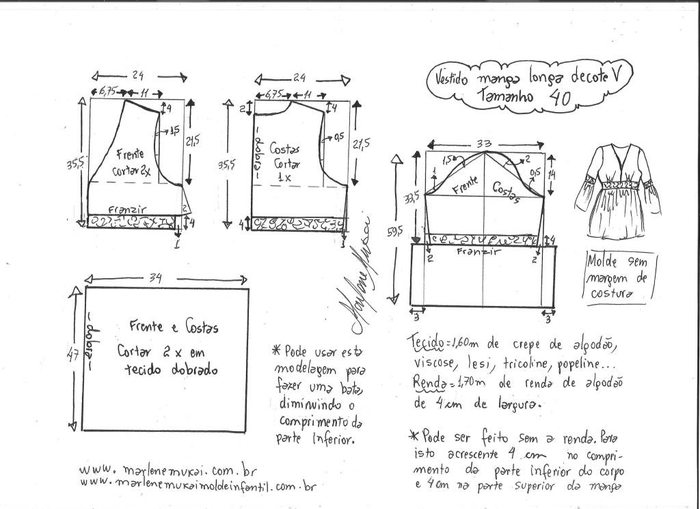 Vestido manga longa decote V
Tamanho 40
24
6,75 11
4
3,5
35,5
21,5
Frente
cortar 2x
Franzir
2
4
1
24
6,75 11
2
4
0,5
35,5
21,5
dobra
Costas
Cortar
1x
4
1
33
1,5
2
14
Frente
Costas
33,5
59,5
4
2
Franzir
2
3
3
Molde sem
margem de
costura
Marlene Mukai
34
47
dobra
Frente e Costas
Cortar 2x em
tecido dobrado
* Pode usar esta
modelagem para
fazer uma bata,
diminuindo o
comprimento da
parte inferior.
Tecido=1,60m de crepe de algodão,
viscose, lesi, tricoline, popeline...
Renda=1,70m de renda de algodão
de 4 cm de largura.
* Pode ser feito sem a renda. Para
isto acrescente 4 cm no compri-
mento da parte inferior do corpo
e 4cm na parte superior da manga
www.marlenemukai.com.br
www.marlenemukaimoldeinfantil.com.br